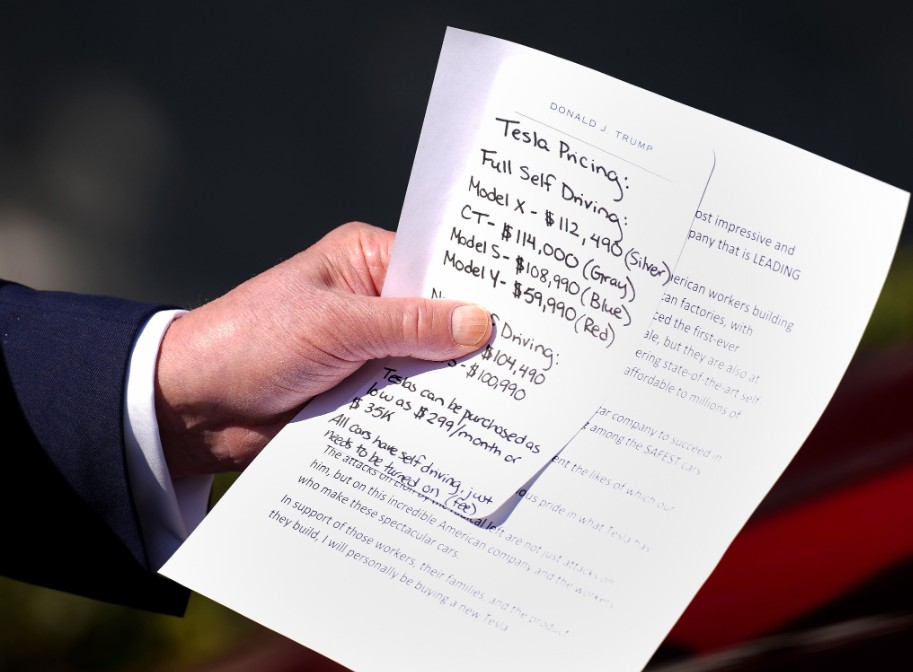 DONALD J. TRUMP
Tesla Pricing:
Full Self Driving:
Model X - $112,490 (Silver)
CT - $114,000 (Gray)
Model S - $108,990 (Blue)
Model Y - $59,990 (Red)
Driving:
$104,490
- $100,990
Teslas can be purchased as
low as $299/month or
$35K
All cars have self driving, just
needs to be turned on (fee)
impressive and
that is LEADING
workers building
factories, with
the first-ever
but they are also at
state-of-the-art self
affordable to millions of
company to succeed in
among the SAFEST cars
the likes of which our
pride in what Tesla has
The attacks on left are not just attacks on
him, but on this incredible American company and the workers
who make these spectacular cars.
In support of those workers, their families, and the product
they build, I will personally be buying a new Tesla